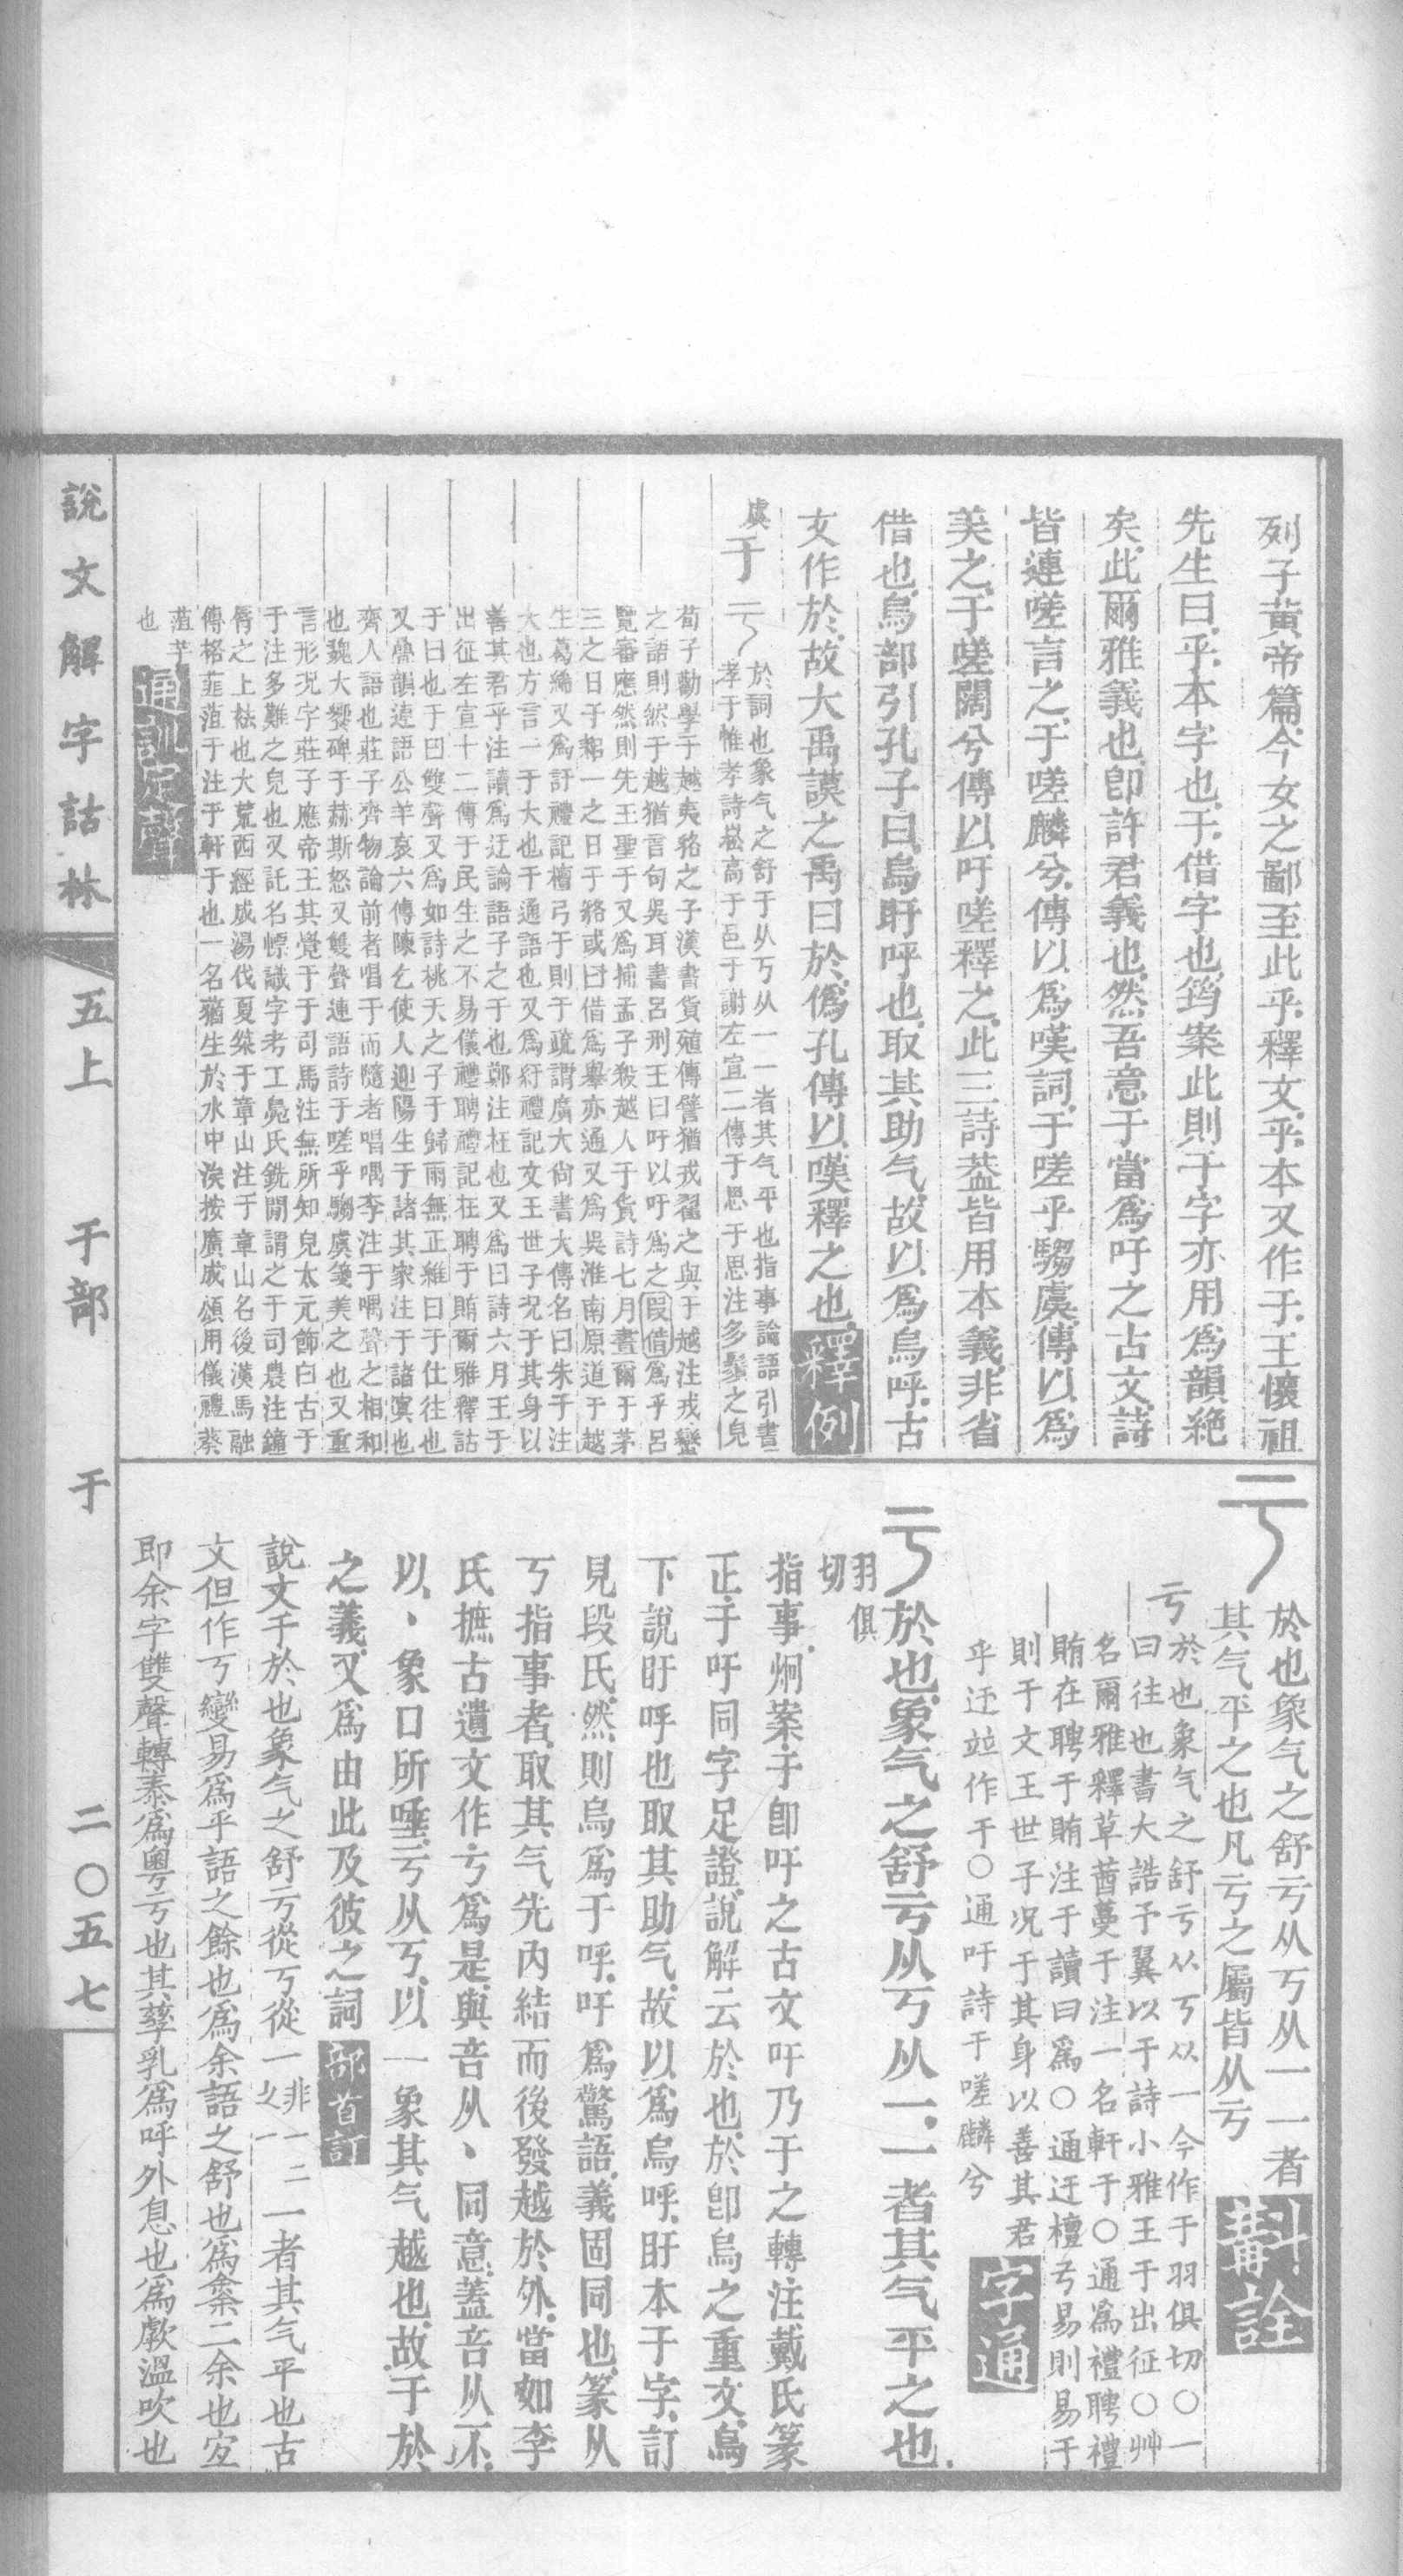 列子黃帝篇今女之鄙至此乎釋文乎本又作于王懷祖
先生曰乎本字也于借字也筠案此則于字亦用爲韻絕
矣此爾雅義也卽許君義也然吾意于當爲吁之古文詩
皆連嗟言之于嗟麟兮傳以爲嘆詞于嗟乎騶虞傳以爲
美之于嗟闊兮傳以吁嗟釋之此三詩葢皆用本義非省
借也烏部引孔子曰烏盱呼也取其助气故以爲烏呼古
文作於故大禹謨之禹曰於僞孔傳以嘆釋之也釋例
虞于
於詞也象气之舒于从丂从一一者其气平也指事論語引書
孝于惟孝詩崧高于邑于謝左宣二傳于思于思注多鬚之皃
荀子勸學于越夷貉之子漢書貨殖傳譬猶戎翟之與于越注戎蠻
之語則然于越猶言句吳耳書呂刑王曰吁以吁爲之叚借爲乎呂
覽審應然則先王聖于又爲捕孟子殺越人于貨詩七月晝爾于茅
三之日于耜一之日于貉或曰借爲舉亦通又爲吳淮南原道于越
生葛絺又爲訏禮記檀弓于則于疏謂廣大尙書大傳名曰朱于注
大也方言一于大也于通語也又爲紆禮記文王世子況于其身以
善其君乎注讀爲迂論語子之于也鄭注枉也又爲曰詩六月王于
出征左宣十二傳于民生之不易儀禮聘禮記在聘于賄爾雅釋詁
于曰也于曰雙聲又爲如詩桃夭之子于歸雨無正維曰于仕往也
又疊韻連語公羊哀六傳陳乞使人迎陽生于諸其家注于諸窴也
齊人語也莊子齊物論前者唱于而隨者唱喁李注于喁聲之相和
也魏大饗碑于赫斯怒又雙聲連語詩于嗟乎騶虞箋美之也又重
言形況字莊子應帝王其覺于于司馬注無所知皃太元飾曰古于
于注多難之皃也又託名幖識字考工鳧氏銑閒謂之于司農注鐘
脣之上袪也大荒西經成湯伐夏桀于章山注于章山名後漢馬融
傳格韮菹于注于軒于也一名蕕生於水中涘按廣成頌用儀禮葵
菹芋
也通訓定聲
亏於也象气之舒亏从丂从一一者
其气平之也凡亏之屬皆从亏斠詮
亏於也象气之舒亏从丂从一今作于羽俱切〇一
曰往也書大誥予翼以于詩小雅王于出征〇艸
名爾雅釋草蕕蔓于注一名軒于〇通爲禮聘禮
賄在聘于賄注于讀曰爲〇通迂檀弓易則易于
則于文王世子況于其身以善其君
乎迂竝作于〇通吁詩于嗟麟兮字通
亏於也象气之舒亏从丂从一一者其气平之也
羽俱
切
指事炯案于卽吁之古文吁乃于之轉注戴氏篆
正于吁同字足證說解云於也於卽烏之重文烏
下說盱呼也取其助气故以爲烏呼盱本于字訂
見段氏然則烏爲于呼吁爲驚語義固同也篆从
丂指事者取其气先內結而後發越於外當如李
氏摭古遺文作亏爲是與咅从丶同意蓋咅从不
以丶象口所唾亏从丂以一象其气越也故于於
之義又爲由此及彼之詞部首訂
說文于於也象气之舒亏從丂從一非一二一者其气平也古
文但作丂變易爲乎語之餘也爲余語之舒也爲㒰二余也㝎
卽余字雙聲轉泰爲粵亏也其孳乳爲呼外息也爲歑溫吹也
說文解字詁林
五上
于部
于
二〇五七